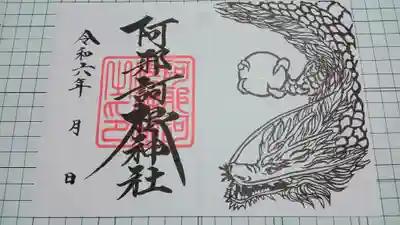 阿那訶根神社
令和六年　月　日